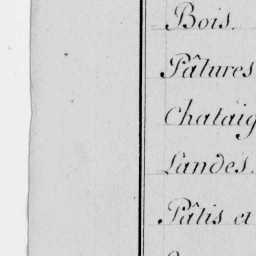 Bois.
Pâtures
Chataig
Landes.
Pâtis et